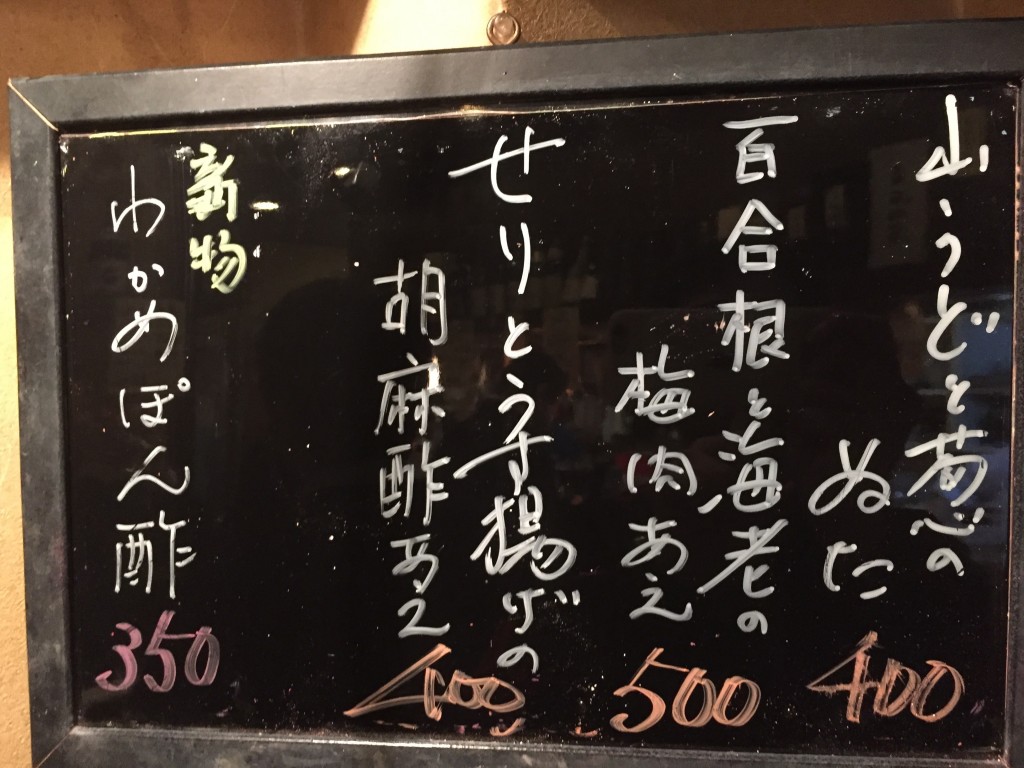 山うどと葱の
ぬた
400
百合根と海老の
梅肉あえ
500
せりとうす揚げの
胡麻酢あえ
400
新物
わかめぽん酢
350